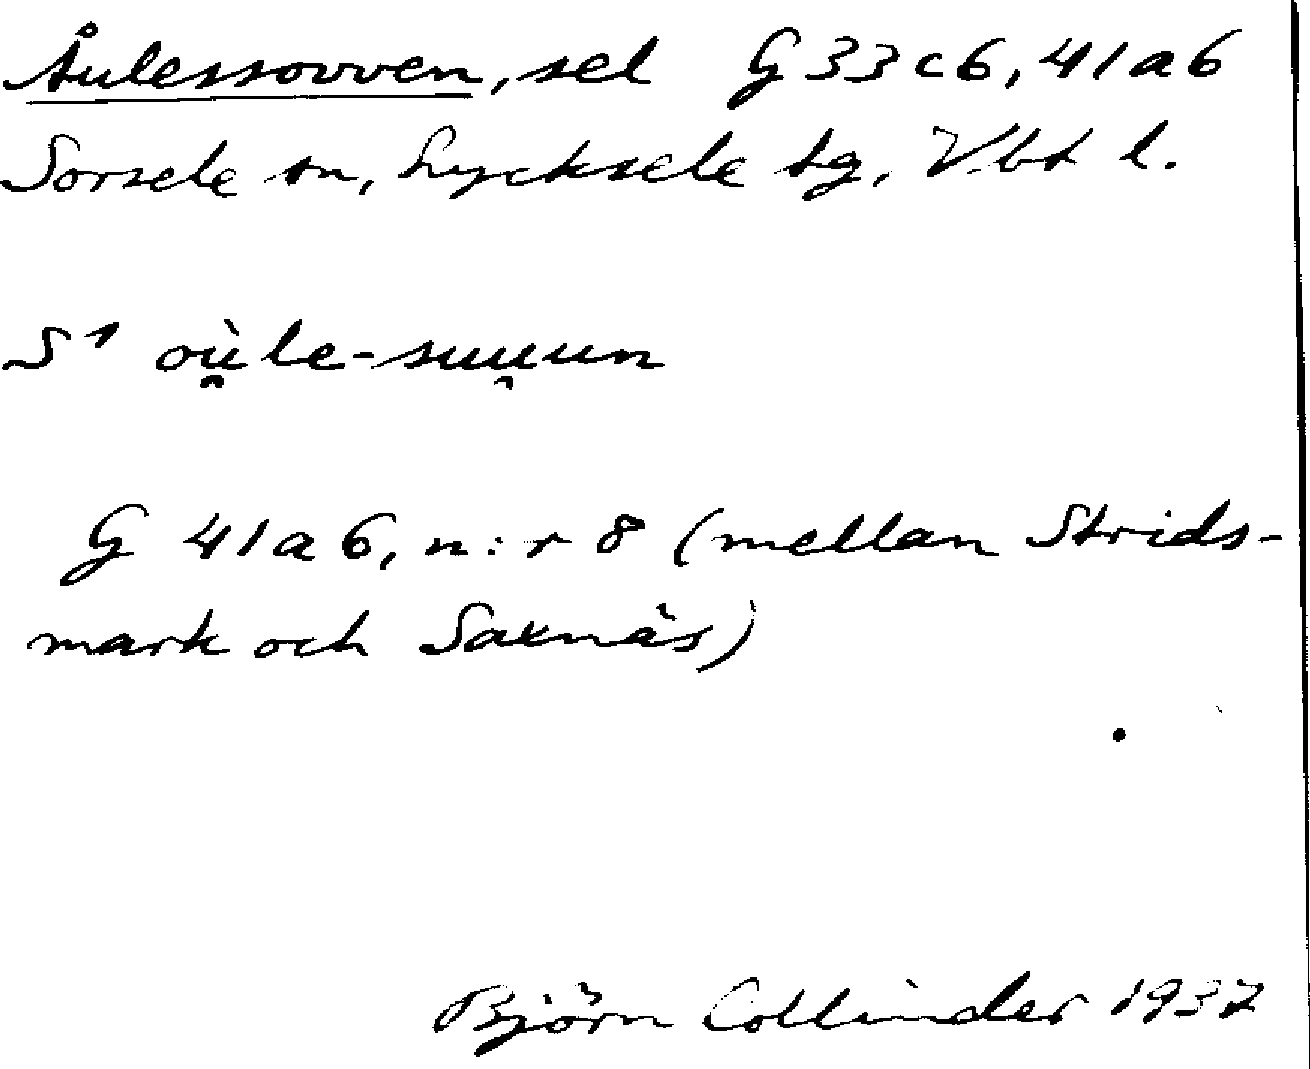 Åulessovven, sel G 33 c 6, 41 a 6
Sorsele sn, Lycksele tg, Vbt l.
S¹ où̯le-suu̯un
G 41 a 6, n:r 8 (mellan Strids-
mark och Saxnäs)
Björn Collinder 1937